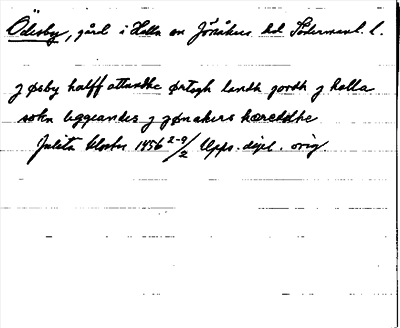 Ödesby, gård i Halla sn Jönåkers hd Södermanl. l.
j øsby halff attandhe ørtogh landh jordh j halla
sokn liggiandes j jønakers hæreddhe
Julita kloster 1456 2-9/2 Upps. dipl. orig